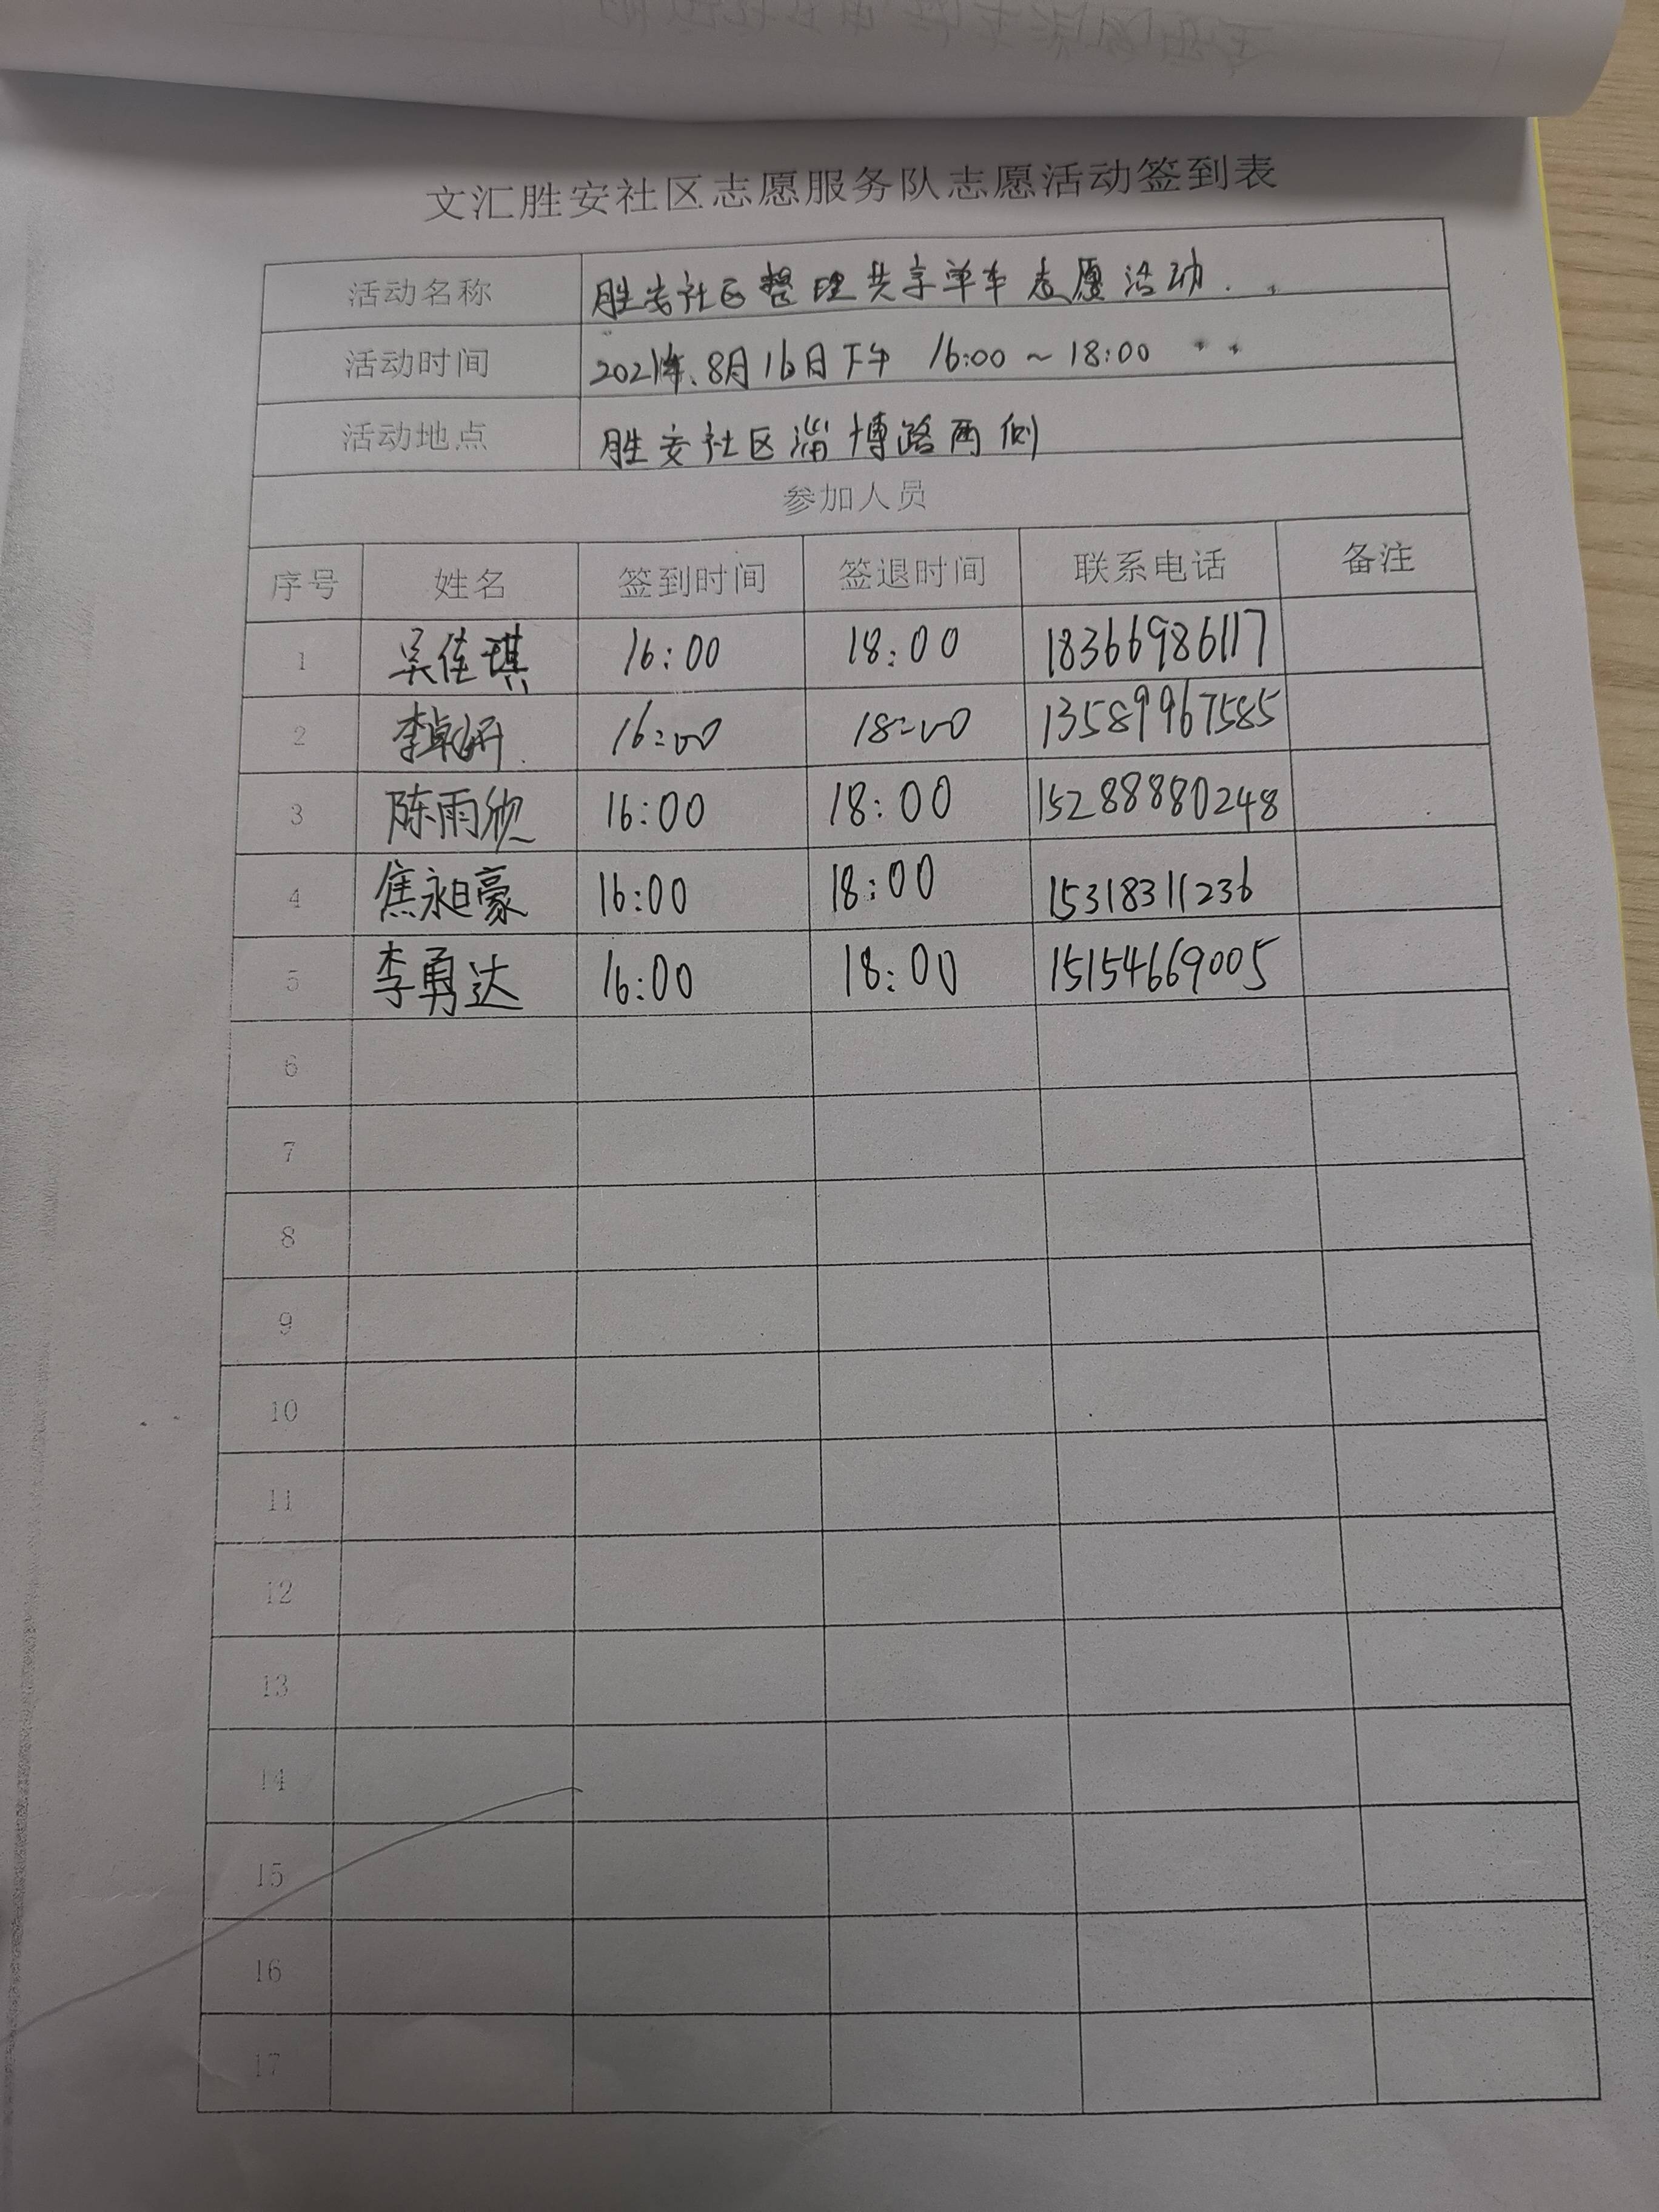 文汇胜安社区志愿服务队志愿活动签到表
活动名称 胜安社区整理共享单车志愿活动.
活动时间 2021年.8月16日下午 16:00~18:00
活动地点 胜安社区淄博路两侧
参加人员
序号 姓名 签到时间 签退时间 联系电话 备注
1 吴佳琪 16:00 18:00 18366986117
2 李卓妍 16:00 18:00 13589967585
3 陈雨欣 16:00 18:00 15288880248
4 焦永昊豪 16:00 18:00 15318311236
5 李勇达 16:00 18:00 15154669005
6
7
8
9
10
11
12
13
14
15
16
17